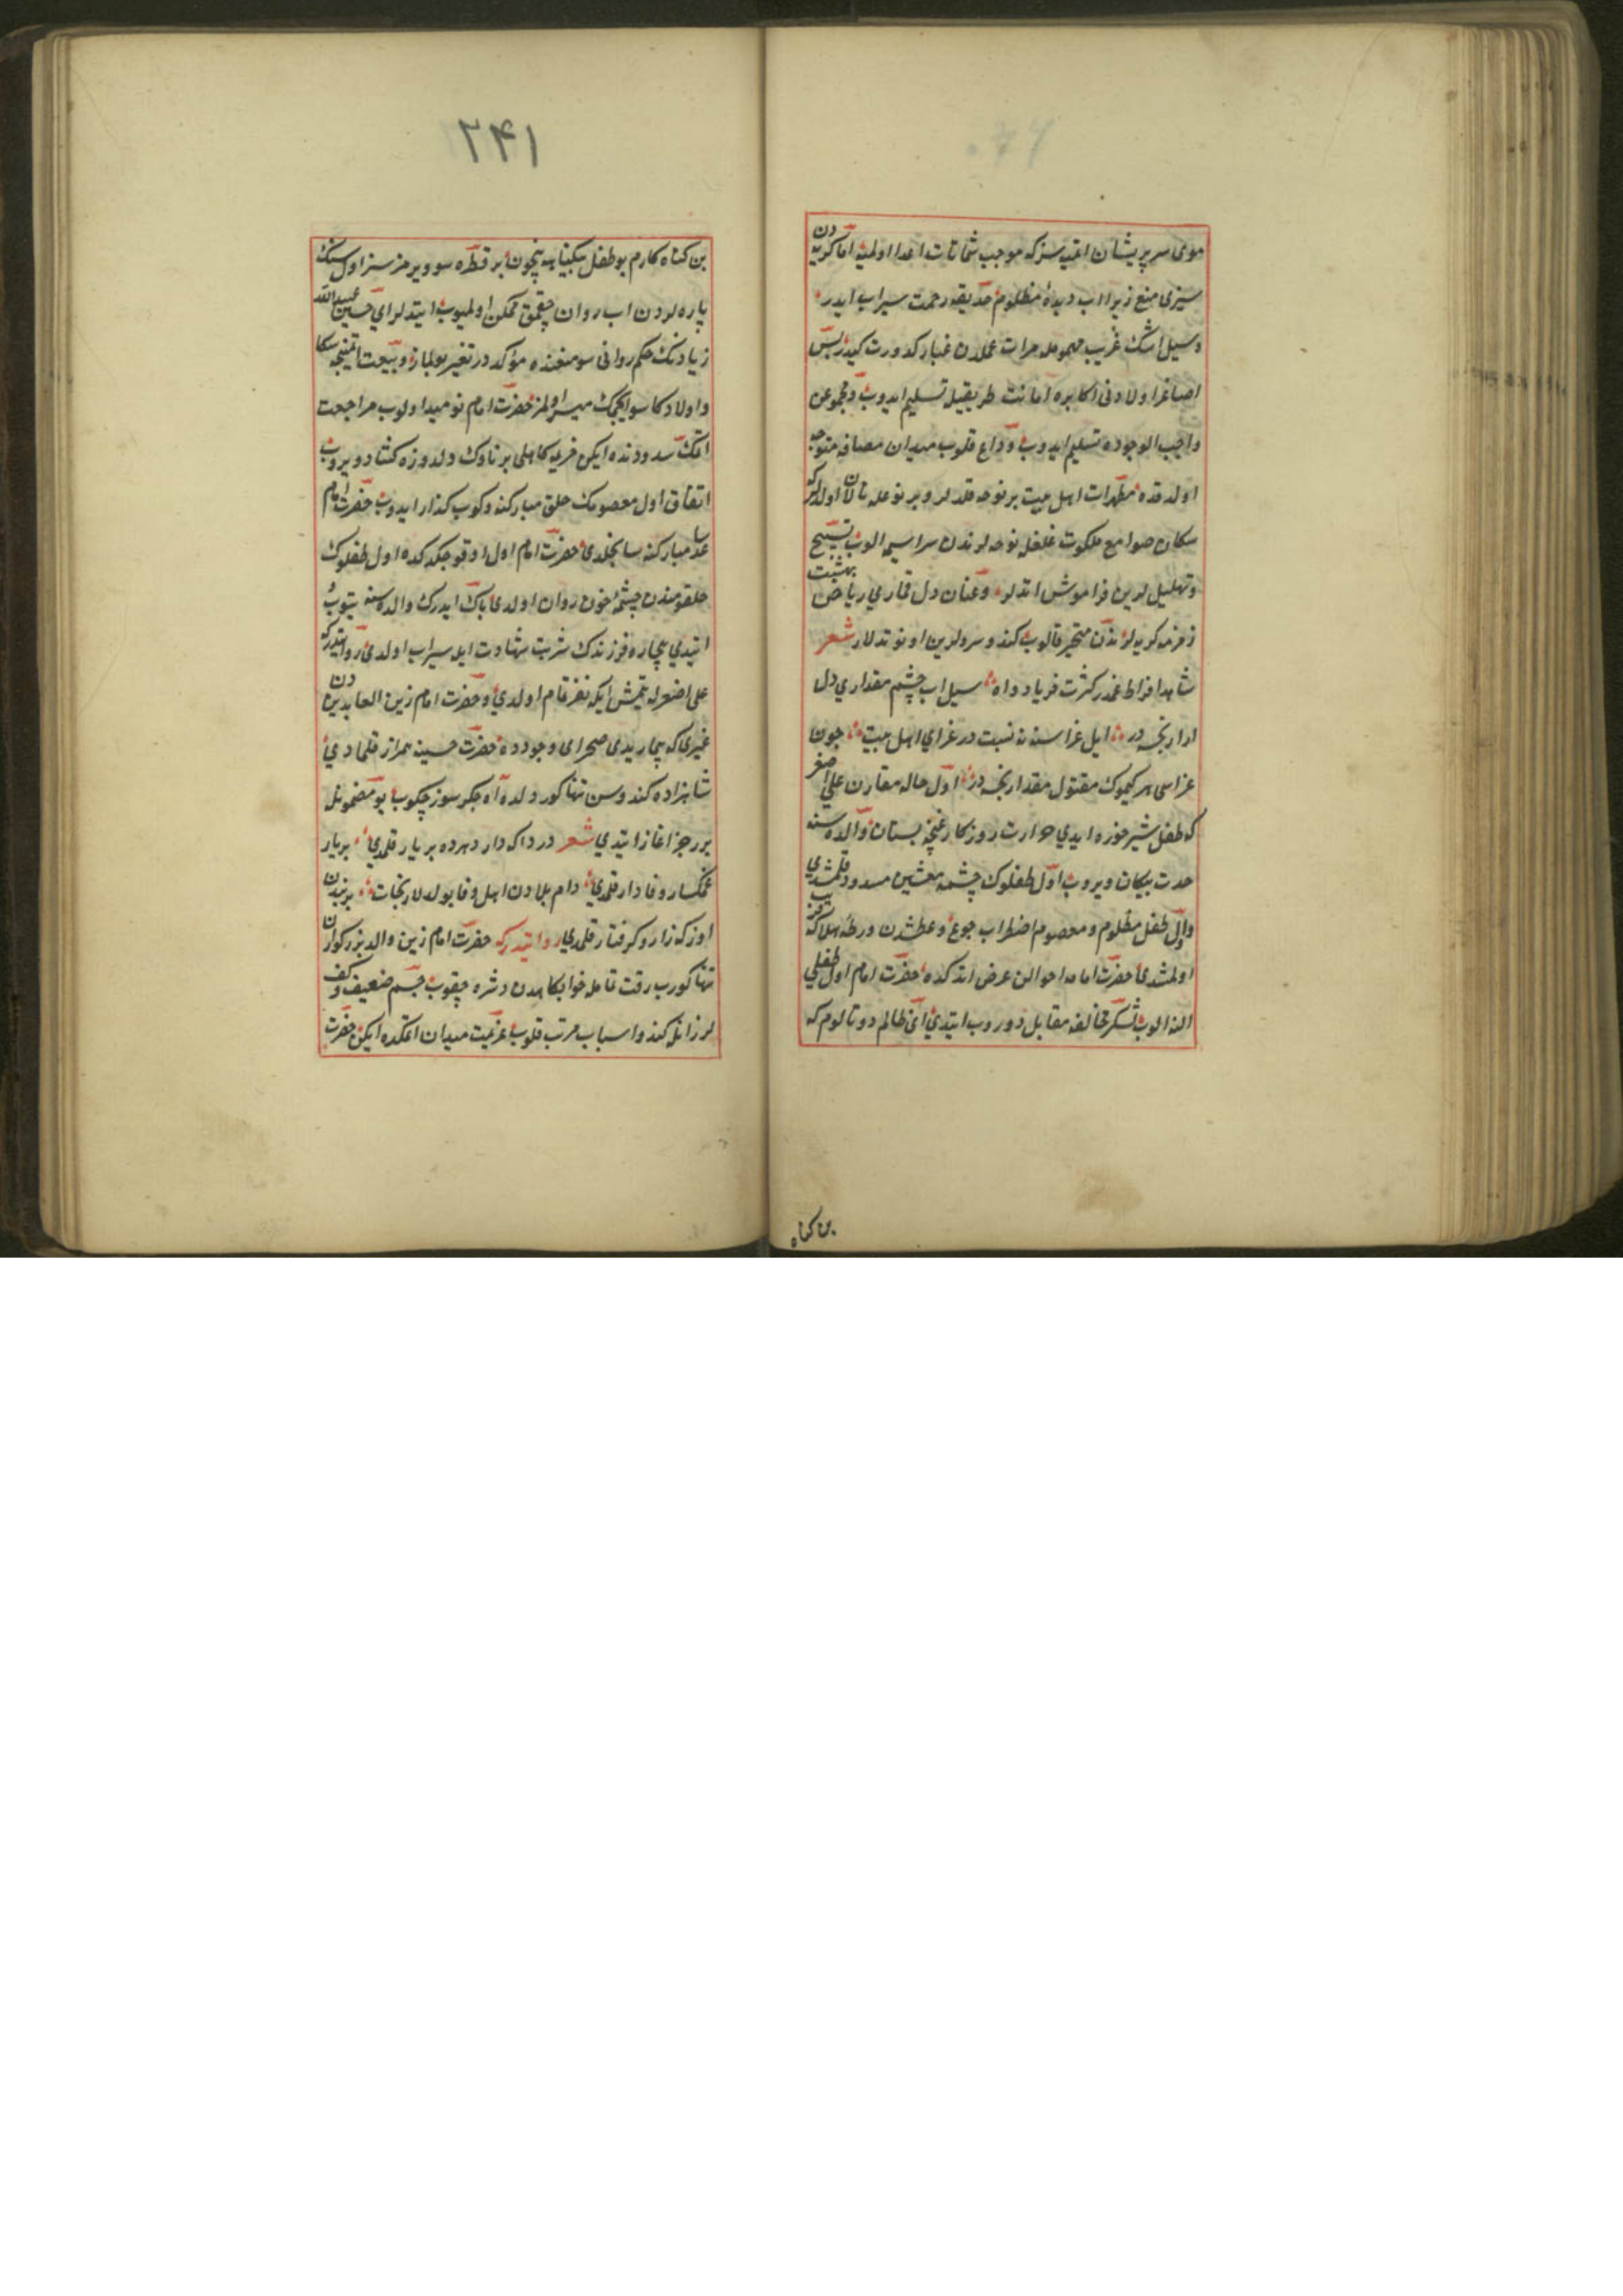 موی سر پریشان اتمیه سزکه موجب شماتت اعدا اولمیه اما کریه دن
سیزی منع زیرا اب دیدهٔ مظلوم حدیقه رحمت سیراب ایدر
وسیل اشک غریب مهموم مرات عملدن غبار کدورت کیدر پس
اصاغر اولادنی اکابره امانت طریقیله تسلیم ایدوب ومجموعن
واجب الوجوده تسلیم ایدوب وداع قلوب میدان مصافه متوجه
اولدقده مطهرات اهل بیت بر نوحه قلدلر وبر نوعله نالان اولدلر که
سکان صوامع ملکوت غلغله نوحه لرندن سراسیمه الوب تسبیح
وتهلیل لرین فراموش اتدلر وعنان دل قماری ریاض بهشت
زمزمه کریه لرندن متحیر قالوب کندو سرودلرین اونوتدلار شعر
شاهد افراط غمدر کثرت فریاد واه سیل اب چشم مقداری دل
ازارنجه در ایل عزاسنه نه نسبت در عزای اهل بیت چون
عزاسی هر کیموک مقتول مقدارنجه در اول حاله مقارن علی اصغر
که طفل شیرخوره ایدی حرارت روزکار غنچه بستان والده سنه
حدت پیکان ویروب اول طفلوک چشمه معیشتین مسدود قلمشدی
واول طفل مظلوم ومعصوم اضطراب جوع وعطشدن ورطه هلاکه
اولمشدی حضرت امامه احوالن عرض اتدکده حضرت امام اول طفلی
النه الوب لشکر مخالفه مقابل دوروب ایتدی ای ظالم دوتالوم که
بن کناه
۲۴۱
بن کناه کارم بو طفل بیکناهه نیچون بر قطره سو ویرمزسز اول سنک
پاره لردن اب روان چقمق ممکن اولمیوب ایتدلر ای حسین عبید الله
زیادنک حکم روانی سو منعنده مؤکد در تغیر بولماز وبیعت اتمینجه سکا
واولادکا سو ایچمک میسر اولمز حضرت امام نومید اولوب مراجعت
اتمک سددنده ایکن خریمه کاهلی بر ناوک دلدوزه کشاد ویروب
اتفاق اول معصومک حلق مبارکنه دکوب کذار ایدوب حضرت امام
ساعد مبارکنه سانجلدی حضرت امام اول اوقو چکدکده اول طفلوک
حلقومندن چشمهٔ خون روان اولدی پاک ایدرک والده سنه یتوب
ایتدی بیچاره فرزندک شربت شهادت ایله سیراب اولدی روایتدر که
علی اصغرله یتمش ایکی نفر تمام اولدی وحضرت امام زین العابدین دن
غیری که بیمار یدی صحرای وجودده حضرت حسینه همراز قلمادی
شاهزاده کندوسن تنها کوردکده آه جکرسوز چکوب بو مضمونله
بر رجز اغاز ایتدی شعر دردا که دار دهرده بر یار قلمدی بر یار
غمکسار وفادار قلمدی دام بلادن اهل وفا بولدلار نجات بر بندن
اوزکه زار وکرفتار قلمدی روایتدر که حضرت امام زین والد بزرکوارن
تنها کورب رقت تمامله خوابکاهدن دشره چقوب جسم ضعیف وکف
لرزانله کندو اسباب مرتب قلوب عزیمت میدان اتمکده ایکن حضرت